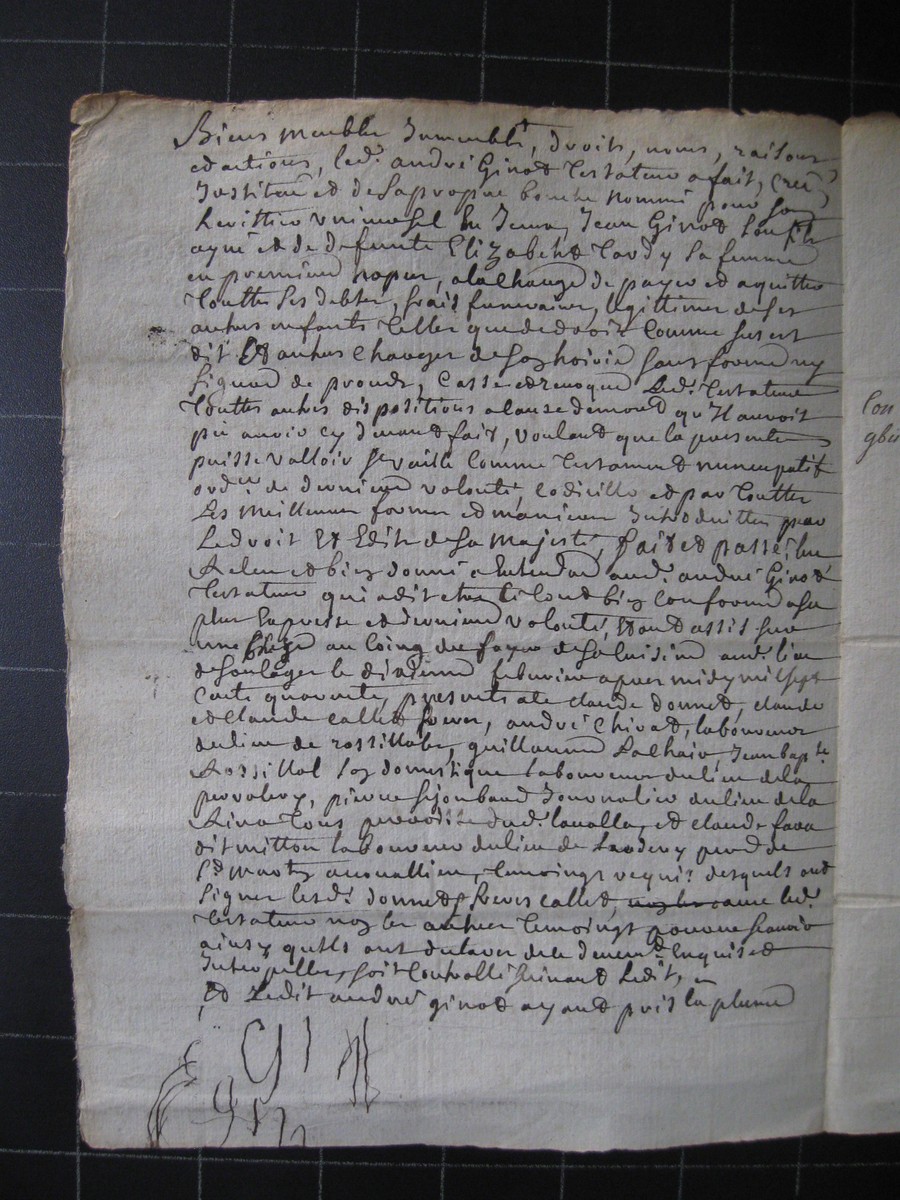 Biens meubles Immeubles, droits, noms, raisons
et actions, led. andré Girod testateur a fait, créé
Institué et de sa propre bouche nommé pour son
heritier universel Jean Girod son fils
ayné et de defunte Elizabeth tardy sa femme
en premiere nopces, a la charge de payer et aquitter
touttes ses debtes, frais funeraires, legittimes de ses
autres enfants telles que de droit comme sus est
dit Et autres charges de son hoirie sans forme ny
figure de proces, Casse et revoque Led. testateur
touttes autres dispositions a cause de mort qu'Il auroit
peu avoir cy devant fait, voulant que la presente
puisse valloir et vaille comme testament nuncupatif
ord.re de derniere volonté, codicille et par touttes
Les meilleures formes et manieres Introduittes par
Le droit Et Edits de sa majesté, fait et passé
a leu et bien donné a entendre aud. andré Girod
testateur qui a dit estre le tout bien conforme a sa
plus Expresse et derniere volonté, Etant assis sur
une au coing du foyer de sa cuisine aud. lieu
de soulages le dixieme febvrier apres midy mil sept
cents quarente, presents claude donnet, claude
et claude callet freres, andré Chirat, laboureurs
du lieu de rossillol, guillaume Jean bap.te
Rossillol son domestique laboureurs du lieu de la
pervolery, pierre Journalier du lieu de la
Rina tous parroisse dud. lavalla, et claude fara
dit mitton laboureur du lieu de par.d de
S.t martin acoaillieu, temoings requis desquels ont
signer lesd. donnet, freres callet, led.
testateur non les autres temoings pour ne scavoir
ainsy qu'ils ont declaré de ce deuem.t Enquis et
Interpellés, soit Controllé suivant Ledit,
Et Ledit andré girod ayant pris la plume
Con
gbr